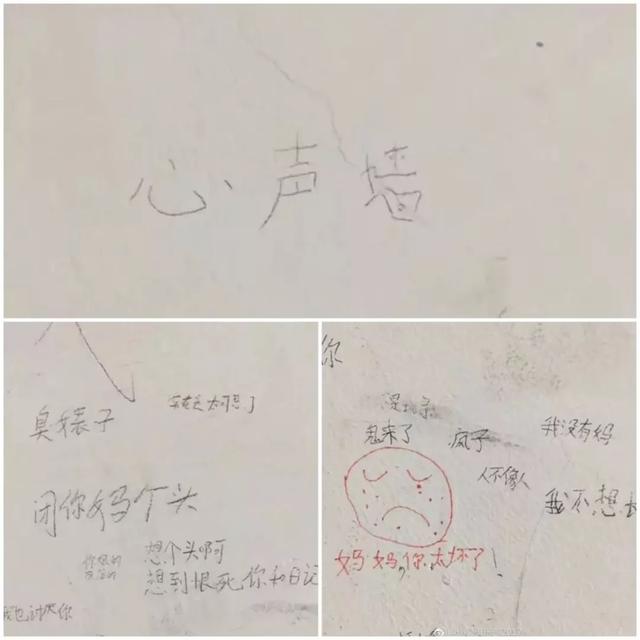 心声墙
臭婊子
太可恶了
闭你妈个头
想个头啊
想到恨死你和日记
我也讨厌你
你
鬼来了
疯子
我没有妈
人不像人
我不想
妈妈,你太坏了!